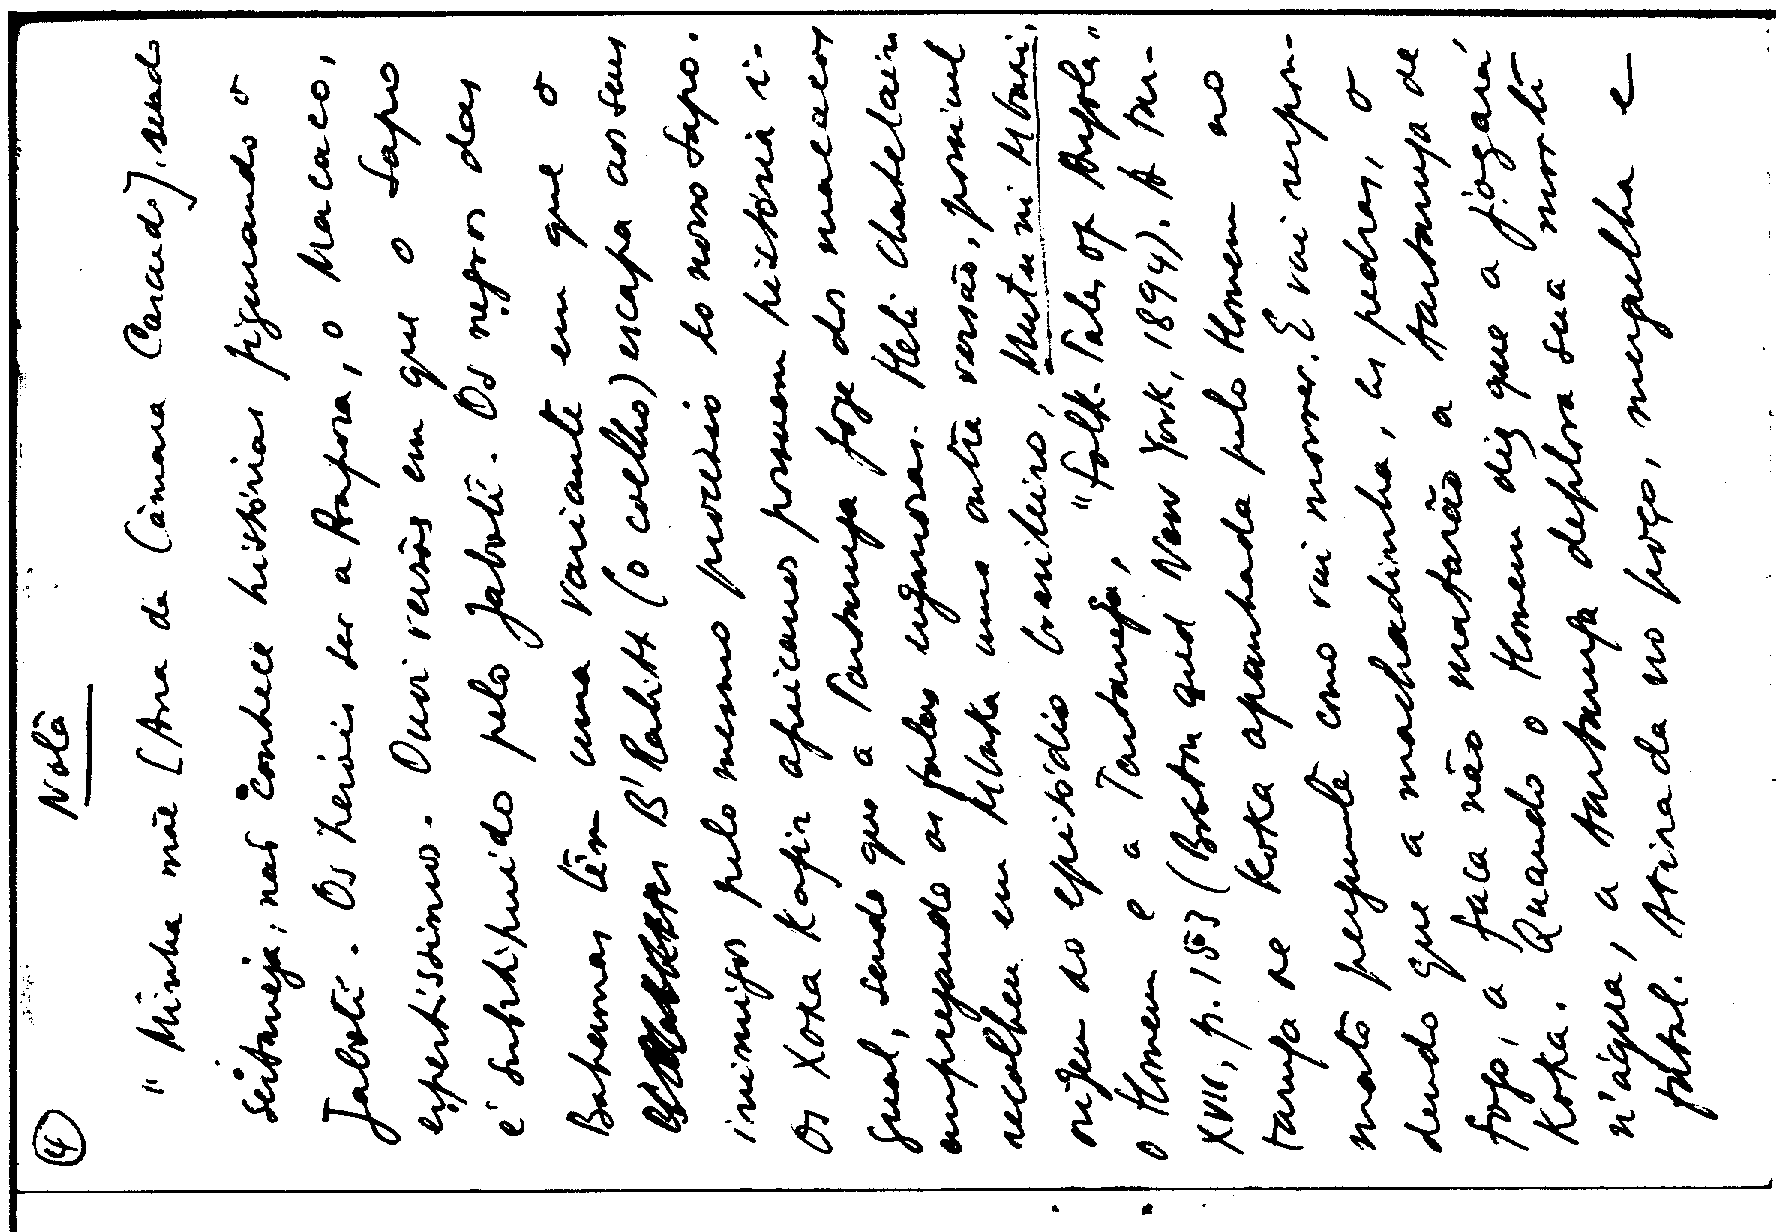 4
Nota
" Minha mãe [Ana da Câmara Cascudo], sendo
sertaneja, não conhece histórias figurando o
Jaboti. Os heróis ser a Raposa, o Macaco,
espertissimos. Ouvi versões em que o Sapo
é substituido pelo Jaboti. Os negros das
Bahamas têm uma variante em que o
B' Rabitt (o coelho) escapa aos seus
inimigos pelo mesmo processo do nosso Sapo.
Os Xosa Kafir africanos possuem história i-
gual, sendo que a Tartaruga foge dos macacos
empregando as falas enganosas. Heli Chatelain
recolheu em Mbaka uma outra versão, possivel
origem do episódio brasileiro, Mutu ni Mbaxi,
o Homem e a Tartaruga, "Folk-Tales of Angola,"
XVII, p. 153 (Boston and New York, 1894). A tar-
taruga de Koka apanhada pelo Homem no
mato pergunta como vai morrer. E vai respon-
dendo que a machadinha, as pedras, o
fogo, a faca não matarão a tartaruga de
Koka. Quando o Homem diz que a jogará
n'água, a tartaruga deplora sua morte
fatal. Atirada no poço, mergulha e